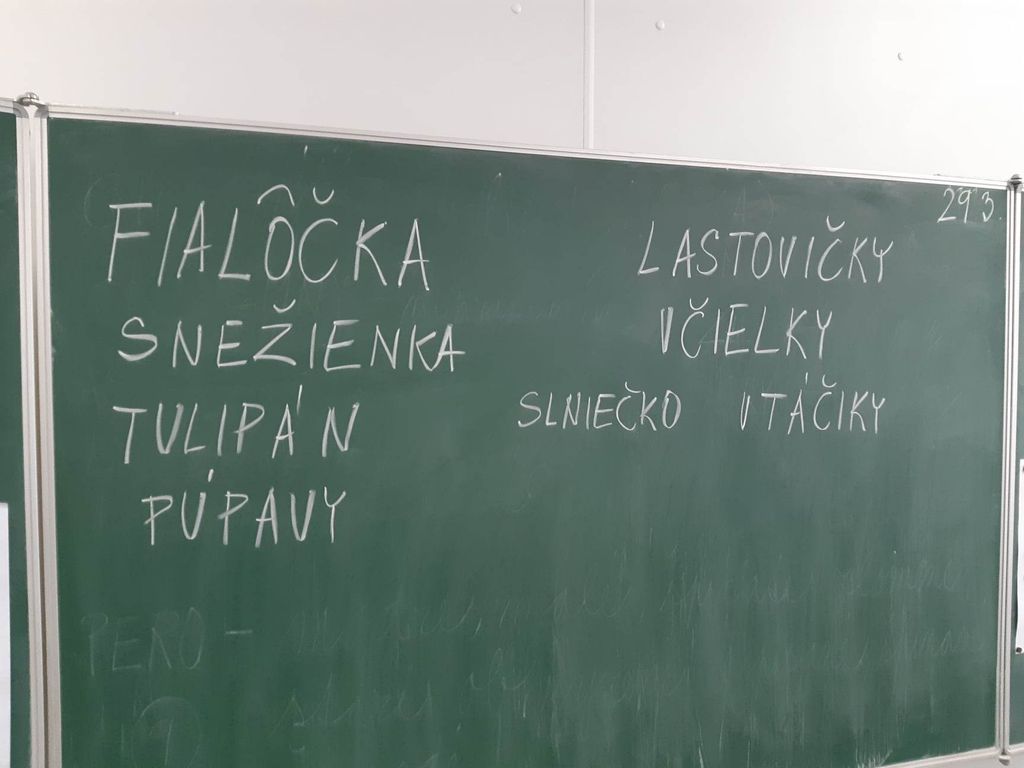 29.3.
FIALÔČKA
SNEŽIENKA
TULIPÁN
PÚPAVY
LASTOVIČKY
VČIELKY
SLNIEČKO VTÁČIKY
PERO -